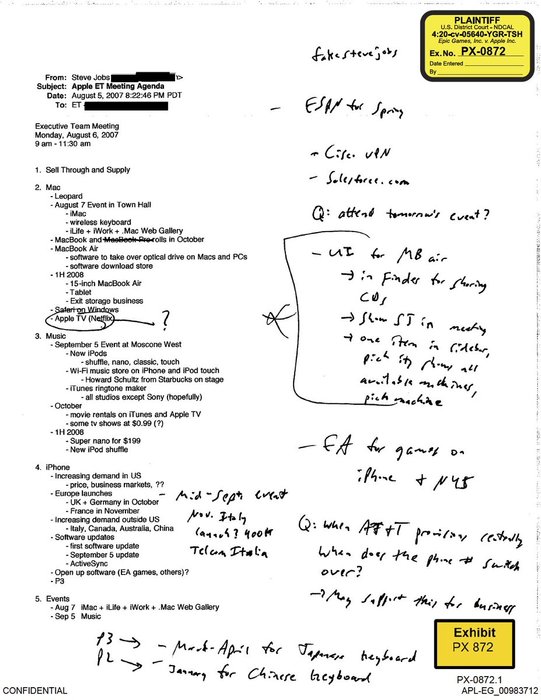 fakestevejobs
PLAINTIFF
U.S. District Court - NDCAL
4:20-cv-05640-YGR-TSH
Epic Games, Inc. v. Apple Inc.
Ex. No. PX-0872
Date Entered
By
From: Steve Jobs
Subject: Apple ET Meeting Agenda
Date: August 5, 2007 8:22:46 PM PDT
To: ET
Executive Team Meeting
Monday, August 6, 2007
9 am - 11:30 am
1. Sell Through and Supply
2. Mac
- Leopard
- August 7 Event in Town Hall
- iMac
- wireless keyboard
- iLife + iWork + .Mac Web Gallery
- MacBook and MacBook Pro rolls in October
- MacBook Air
- software to take over optical drive on Macs and PCs
- software download store
- 1H 2008
- 15-inch MacBook Air
- Tablet
- Exit storage business
- Safari on Windows
- Apple TV (Netflix)
?
3. Music
- September 5 Event at Moscone West
- New iPods
- shuffle, nano, classic, touch
- Wi-Fi music store on iPhone and iPod touch
- Howard Schultz from Starbucks on stage
- iTunes ringtone maker
- all studios except Sony (hopefully)
- October
- movie rentals on iTunes and Apple TV
- some tv shows at $0.99 (?)
- 1H 2008
- Super nano for $199
- New iPod shuffle
4. iPhone
- Increasing demand in US
- price, business markets, ??
- Europe launches
- UK + Germany in October
- France in November
- Increasing demand outside US
- Italy, Canada, Australia, China
- Software updates
- first software update
- September 5 update
- ActiveSync
- Open up software (EA games, others)?
- P3
5. Events
- Aug 7 iMac + iLife + iWork + .Mac Web Gallery
- Sep 5 Music
- ESPN for Spring
- Cisco VPN
- Salesforce.com
Q: attend tomorrow's event?
- UI for MB air
→ in Finder for sharing
CDs
→ Show SJ in meeting
→ one item in sidebar,
pick it, shows all
available machines,
pick machine
- EA for games on
iPhone +
- Mid-Sept event
Nov. Italy
launch? 400K
Telecom Italia
Q: When AT&T provisions
when does the phone # switch
over?
→ May support this for business
P3 → - March-April for Japanese keyboard
P2 → - January for Chinese keyboard
Exhibit
PX 872
PX-0872.1
CONFIDENTIAL
APL-EG_00983712